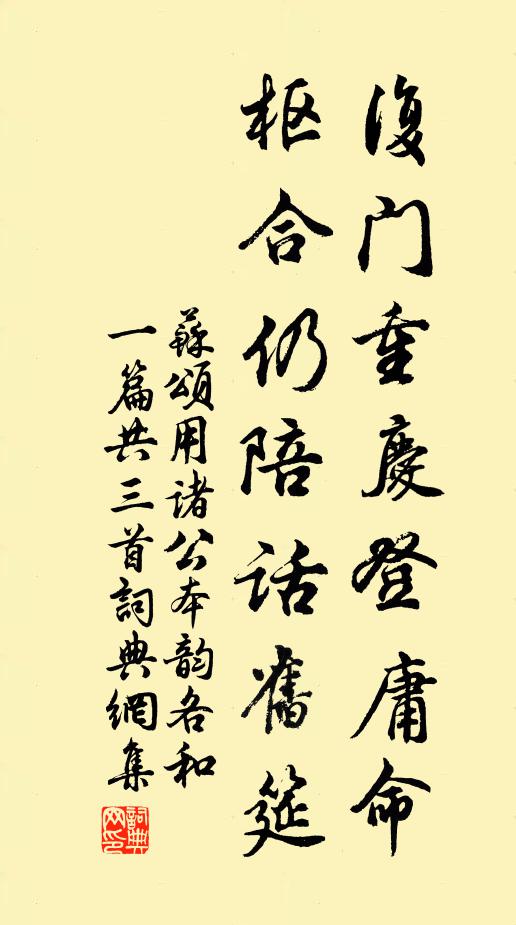 復门重慶登庸命
枢合仍陪話舊筵
蘇頌用诸公本韵各和
一篇共三首詞典網集
詞典
网印